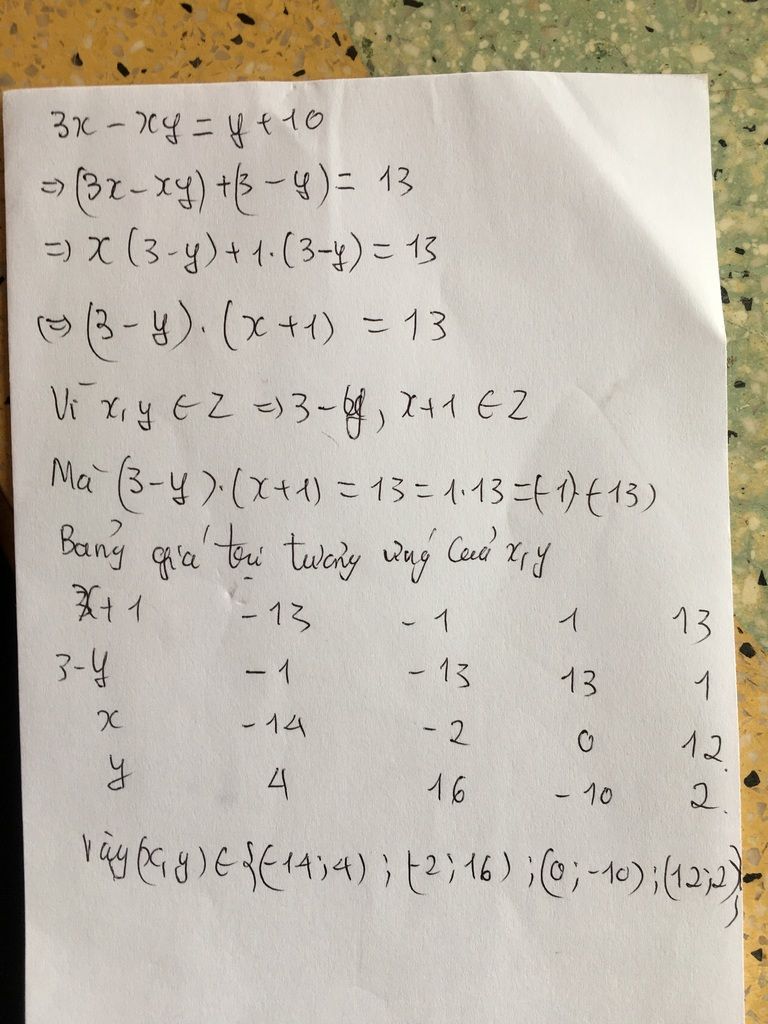 3x - xy = y + 10
=> (3x - xy) + (3 - y) = 13
=> x (3 - y) + 1. (3 - y) = 13
<=> (3 - y) . (x + 1) = 13
Vì x, y ∈ Z => 3 - y, x + 1 ∈ Z
Mà (3 - y) . (x + 1) = 13 = 1.13 = (-1).(-13)
Bảng giá trị tương ứng của x, y
x + 1 -13 -1 1 13
3 - y -1 -13 13 1
x -14 -2 0 12.
y 4 16 -10 2.
Vậy (x, y) ∈ {(-14; 4) ; (-2; 16) ; (0; -10) ; (12; 2)}